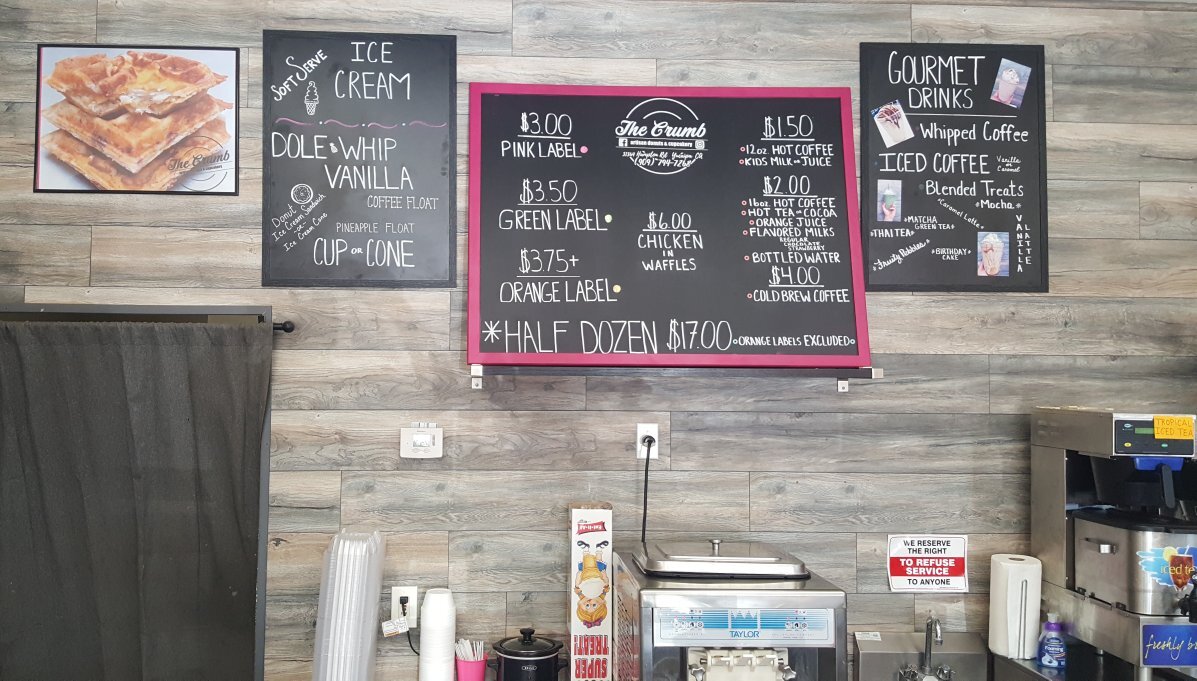 The Crumb
SOFT SERVE
ICE
CREAM
DOLE WHIP
VANILLA
COFFEE FLOAT
DONUT
Ice Cream Sandwich
or
Ice Cream Cone
PINEAPPLE FLOAT
CUP OR CONE
The Crumb
artisan donuts & cupcakery
(909) 794-7268
$3.00
PINK LABEL
$3.50
GREEN LABEL
$3.75+
ORANGE LABEL
$6.00
CHICKEN
IN
WAFFLES
$1.50
12oz. HOT COFFEE
KIDS MILK OR JUICE
$2.00
16oz. HOT COFFEE
HOT TEA OR COCOA
ORANGE JUICE
FLAVORED MILKS
REGULAR
CHOCOLATE
STRAWBERRY
BOTTLED WATER
$4.00
COLD BREW COFFEE
*HALF DOZEN $17.00 ORANGE LABELS EXCLUDED
GOURMET
DRINKS
Whipped Coffee
ICED COFFEE Vanilla or Caramel
Blended Treats
Caramel Latte
*Mocha*
*MATCHA
GREEN TEA*
*THAI TEA*
VANILLA
LATTE
*Fruity Pebbles*
*BIRTHDAY*
CAKE
TROPICAL
ICED TEA
WE RESERVE
THE RIGHT
TO REFUSE
SERVICE
TO ANYONE
Eat-It-All
SUPER
TREAT!
TAYLOR
iced te
freshly b